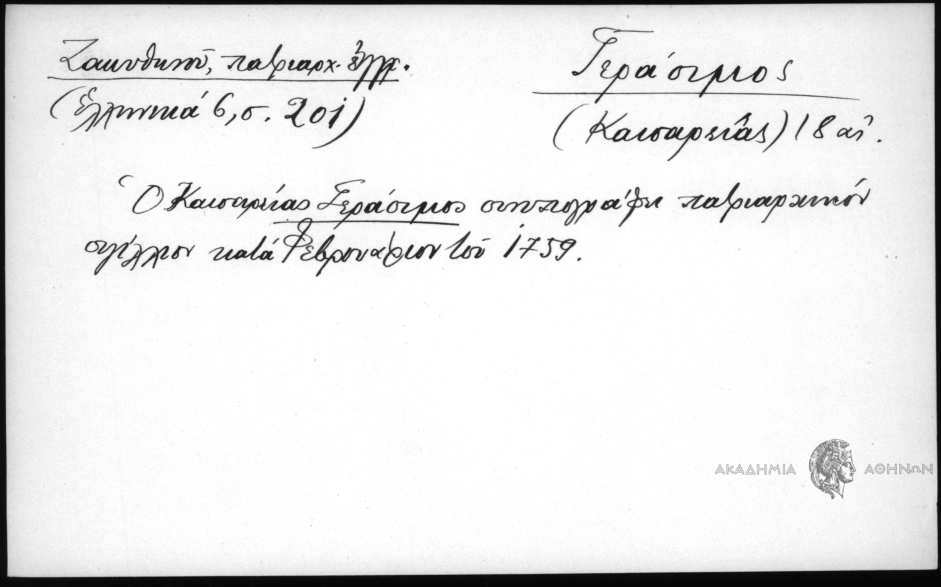 Ζακυθηνοῦ, πατριαρχ. ἔγγρ.
(Ἑλληνικά 6, σ. 201)
Γεράσιμος
(Καισαρείας) 18 αἰ.
Ὁ Καισαρείας Γεράσιμος συνυπογράφει πατριαρχικόν
σιγίλλιον κατά Φεβρουάριον τοῦ 1759.
ΑΚΑΔΗΜΙΑ ΑΘΗΝΩΝ